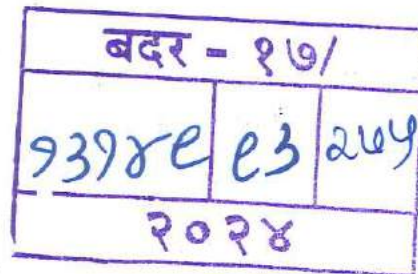 बदर - १७/
१३१४९ ९३ २७५
२०२४